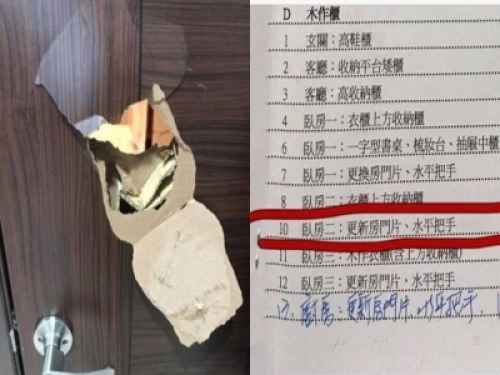 D 木作櫃
1 玄關：高鞋櫃
2 客廳：收納平台矮櫃
3 客廳：高收納櫃
4 臥房一：衣櫃上方收納櫃
6 臥房一：一字型書桌、梳妝台、抽屜中櫃
7 臥房一：更換房門片、水平把手
8 臥房二：衣櫃上方收納櫃
10 臥房二：更新房門片、水平把手
11 臥房三：木作衣櫃(含上方收納櫃)
12 臥房三：更新房門片、水平把手
13. 廚房：更新房門片、水平把手、